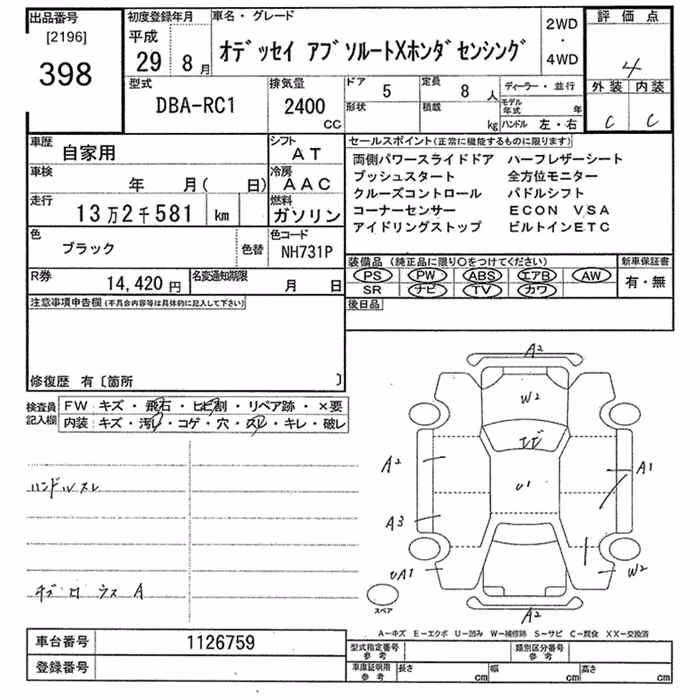 出品番号 初度登録年月 車名・グレード 2WD・4WD 評価点
[2196]
398
平成 29 8月
オデッセイ アブソルートXホンダセンシング
4
型式 排気量 ドア 5 定員 8人 ディーラー・並行 外装 内装
DBA-RC1 2400 CC 形状 積載 kg モデル年式 年 C C
ハンドル 左・右
車歴 自家用 シフト AT セールスポイント(正常に機能するものに限ります)
車検 年 月( 日) 冷房 AAC
走行 13万2千581 km 燃料 ガソリン
両側パワースライドドア ハーフレザーシート
プッシュスタート 全方位モニター
クルーズコントロール パドルシフト
コーナーセンサー ECON VSA
アイドリングストップ ビルトインETC
色 ブラック 色替 色コード NH731P
装備品(純正品に限り○をつけてください) 新車保証書
PS PW ABS エアB AW 有・無
SR ナビ TV カワ
R券 14,420円 名変通知期限 月 日
後日品
注意事項申告欄(不具合内容等は具体的に記入して下さい)
修復歴 有〔箇所 〕
検査員記入欄 FW:キズ・飛石・ヒビ割・リペア跡・×要
内装:キズ・汚れ・コゲ・穴・スレ・キレ・破レ
ハンドルスレ
A2
W2
A2 A1
U1
A3
UA1 W2
A2
スペア
A-キズ E-エクボ U-凹み W-補修跡 S-サビ C-腐食 XX-交換済
車台番号 1126759 型式指定番号 参考 類別区分番号 参考
登録番号 車庫証明用 参考 長さ cm 幅 cm 高さ cm